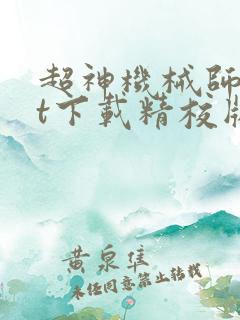 超神機械師
t下載精校版
黄泉隼
未經同意禁止轉載